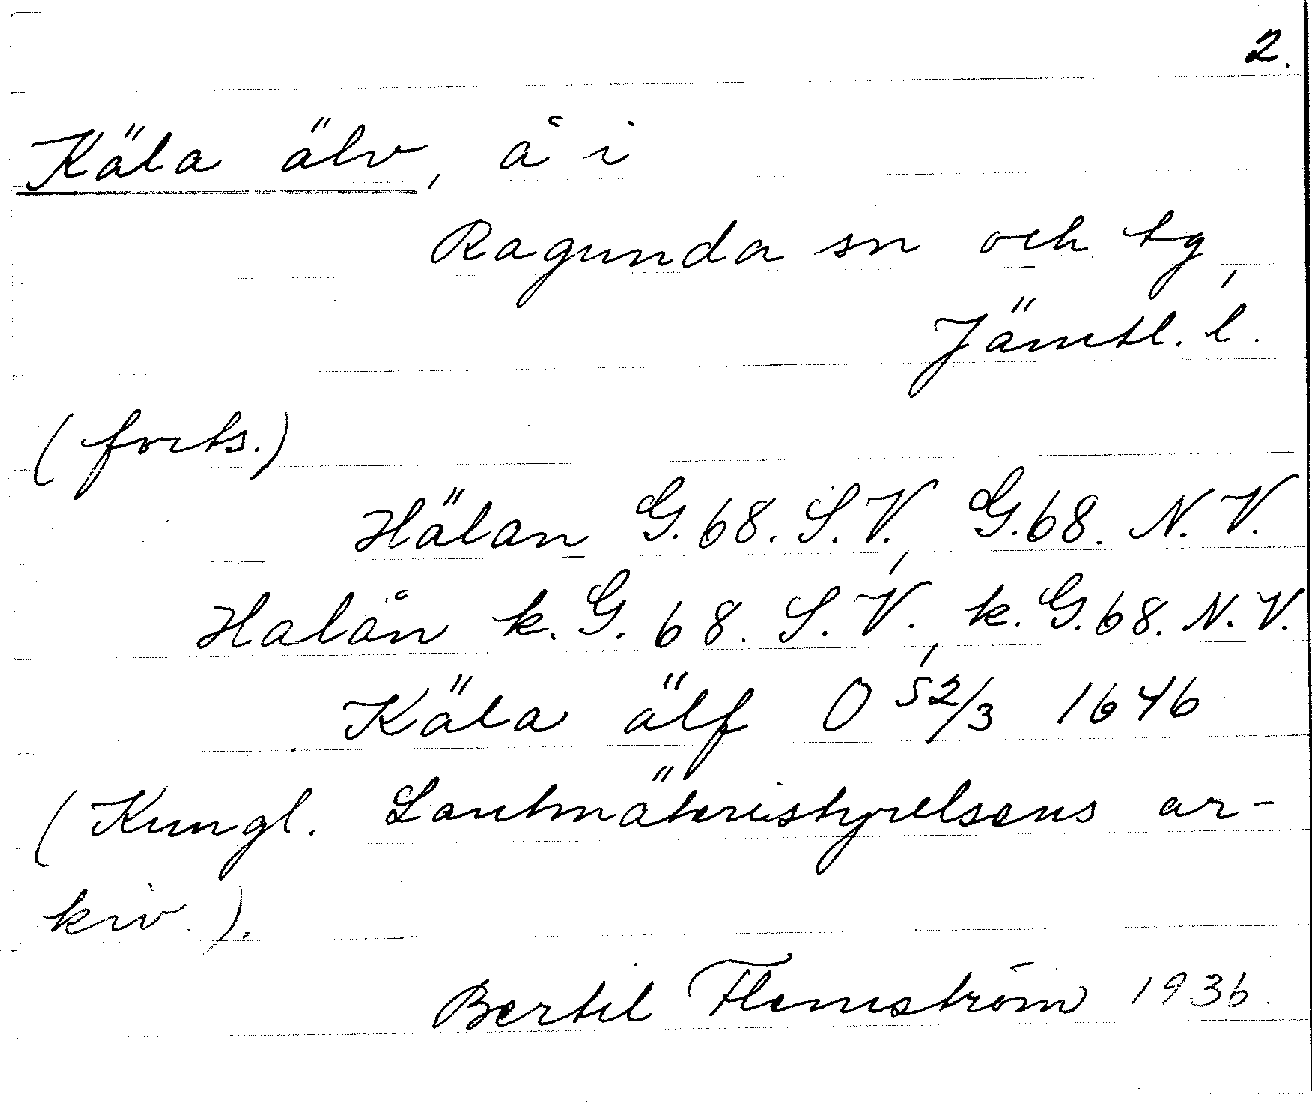 2.
Käla älv, å i
Ragunda sn och tg,
Jämtl. l.
(forts.)
Hälan G.68. S.V., G.68. N.V.
Halån k. G. 68. S.V., k. G.68. N.V.
Käla älf O 52/3 1646
(Kungl. Lantmäteristyrelsens ar-
kiv.).
Bertil Flemström 1936.